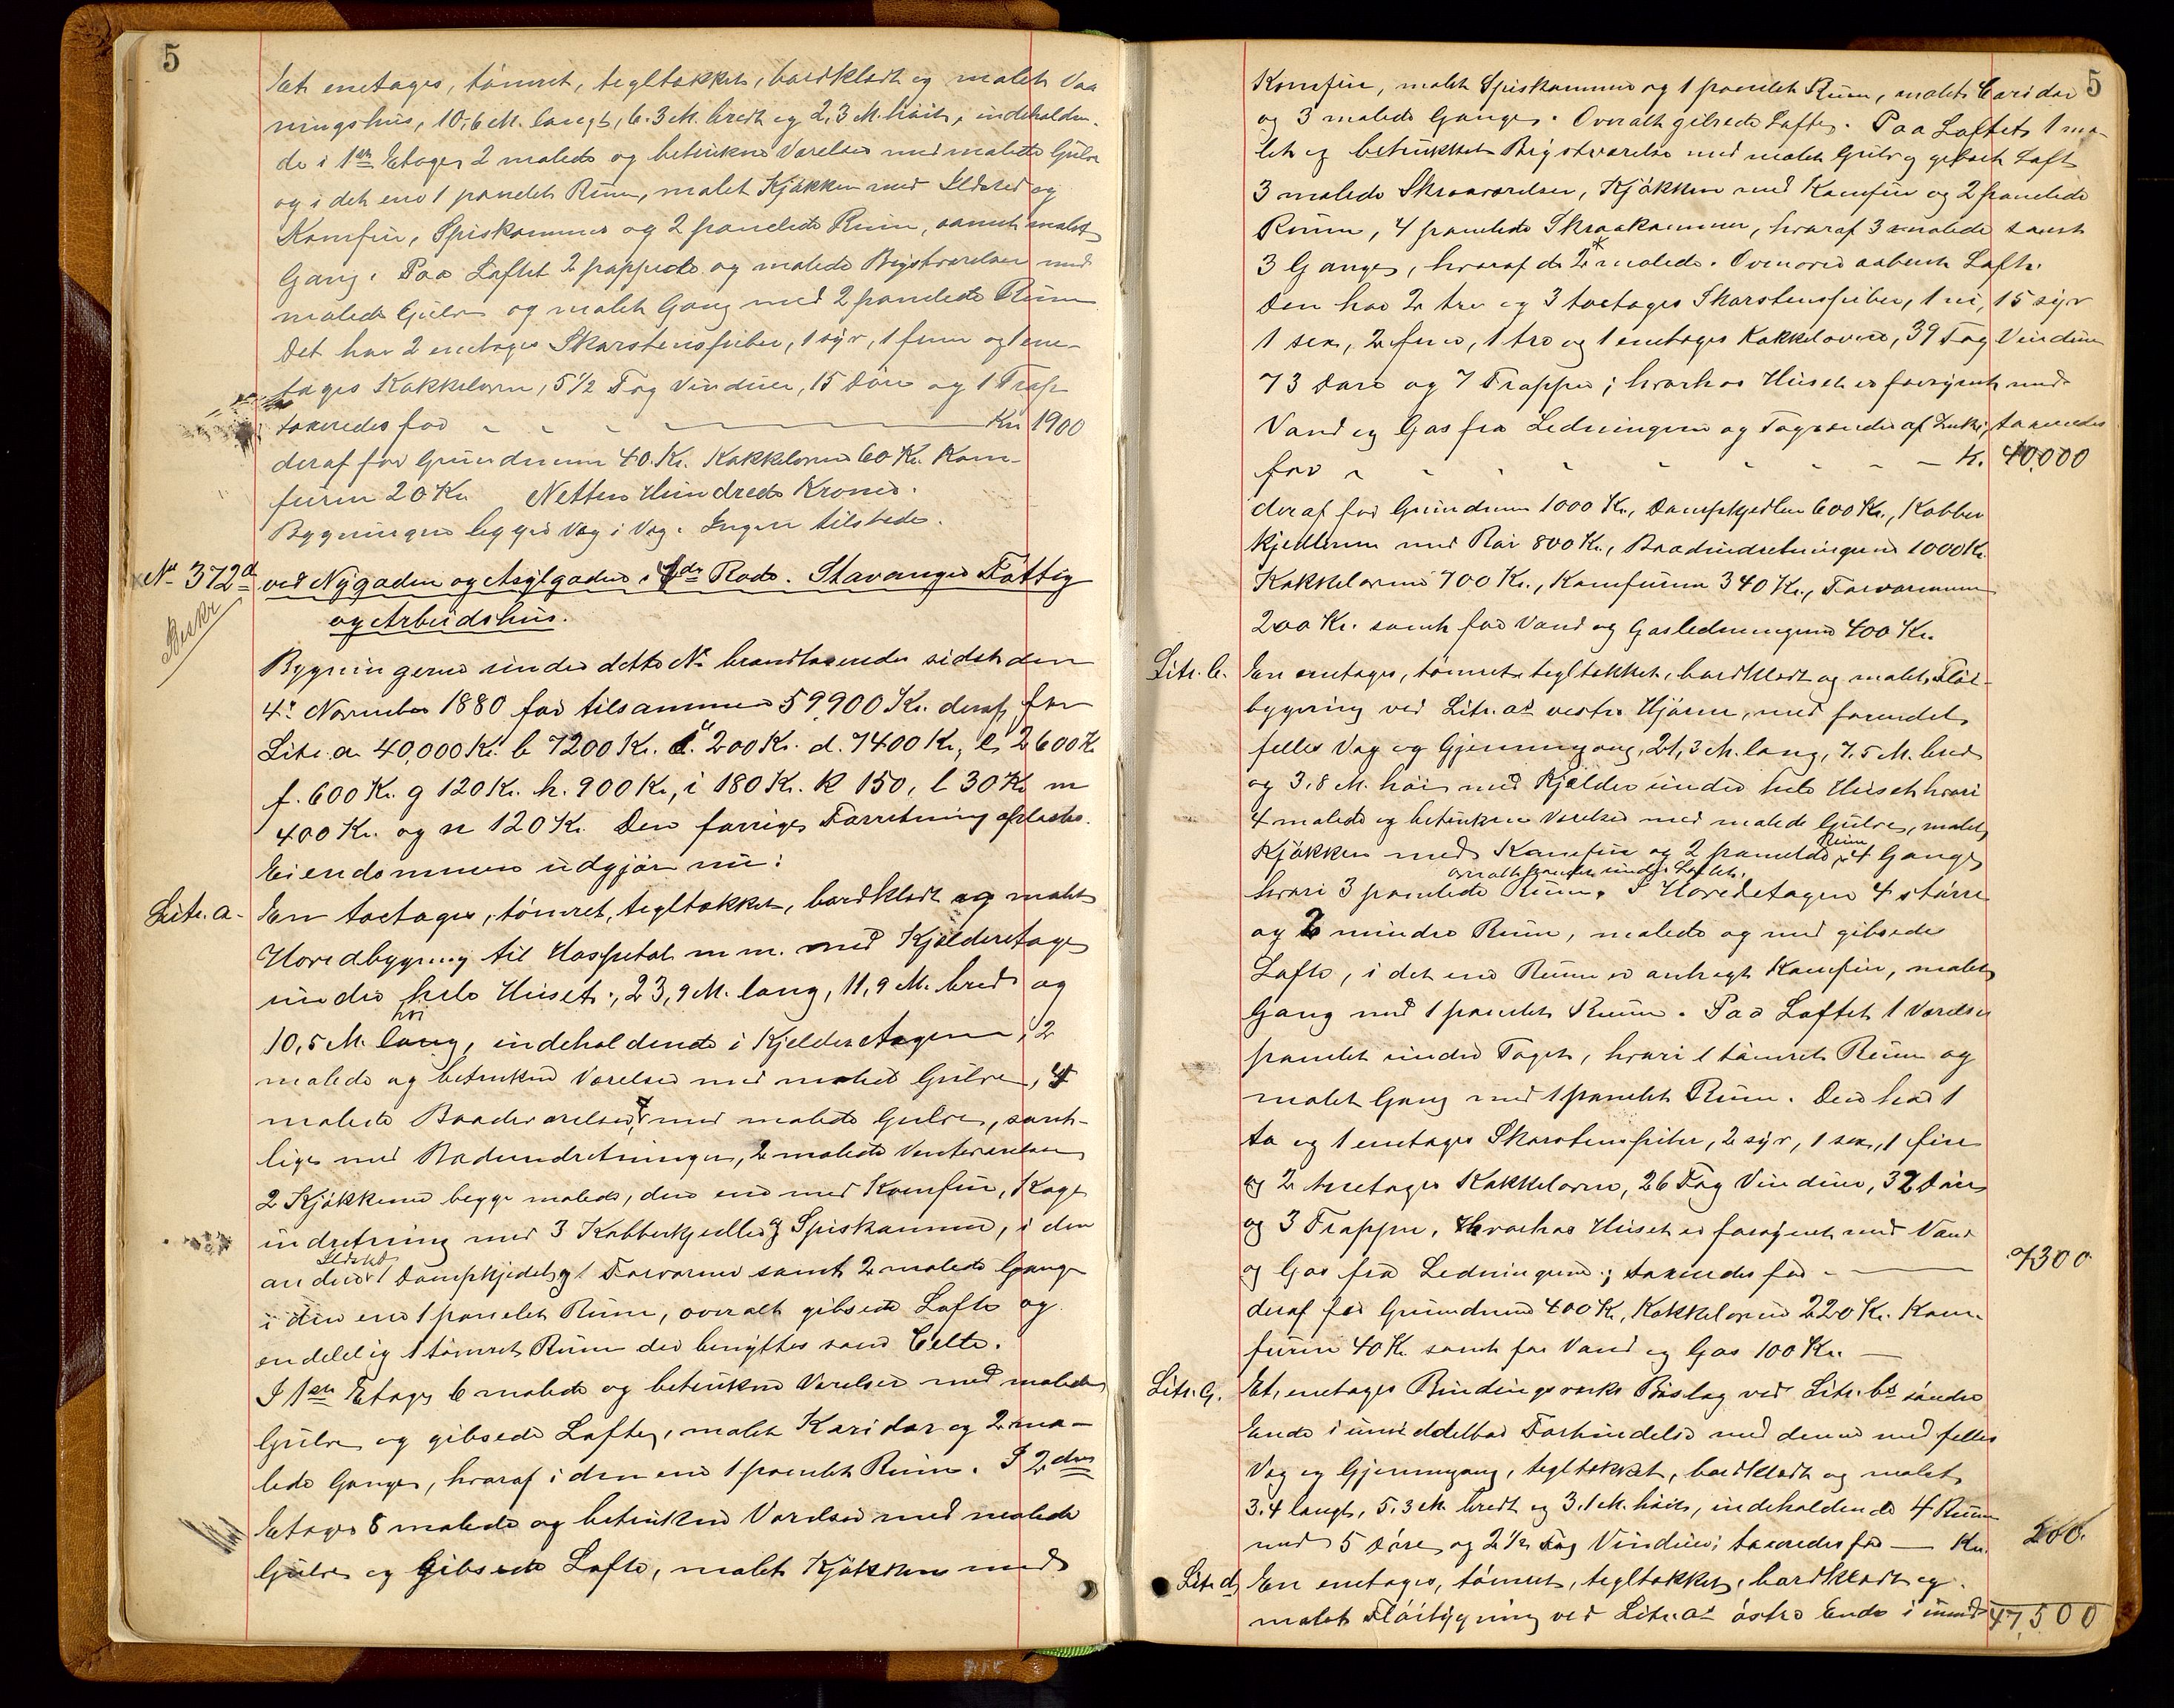 5
Et enetages, tömret, tegltækket, bordklædt og malet Vaa
ningshus, 10,6 M. langt, 6.3 M. bredt og 2,3 M. höit, indeholden-
de i 1ste Etage 2 malede og betrukne Værelser med malede Gulve
og i det ene 1 panelet Rum, malet Kjökken med Ildsted og
Komfur, Spiskammer og 2 panelede Rum, samt malet
Gang. Paa Loftet 2 pappede og malede Bryströrelser med
malede Gulve og malet Gang med 2 panelede Rum
Det har 2 enetages Skorstenspiber, 1 syv, 1 fem og 1 ene-
tages Kakkelovn, 5 1/2 Fag Vinduer, 15 Döre og 1 Trap
taxeredes for - - - - Kr. 1900
deraf for Grundmuren 40 Kr. Kakkelovne 60 Kr. Kom-
furen 20 Kr. Nitten Hundrede Kroner.
Bygningen ligger Væg i Væg. Ingen tilstede.
No 372d ved Nygaden og Asylgaden i 4de Rode. Stavanger Fattig
Beskr
og Arbeidshus.
Bygningerne under dette No brandtaxeredes sidst den
4de November 1880 for tilsammen 59,900 Kr. deraf for
Litr. a 40,000 Kr. b 7200 Kr. c. 200 Kr. d. 7400 Kr, e 2600 Kr
f. 600 Kr. g 120 Kr. h. 900 Kr, i 180 Kr. k 150, l 30 Kr. m
400 Kr. og n 120 Kr. Den forrige Forretning oplæstes.
Eiendommen udgjör nu:
Litr. a. En toetages, tömret, tegltækket, bordklædt og malet
Hovedbygning til Hospital m m. med Kjelderetage
under hele Huset, 23,9 M. lang, 11,9 M. bred og
höi
10,5 M. lang, indeholdende i Kjelderetagen, 2
malede og betrukne Værelser med malet Gulve, 4
malede Badeværelser, med malede Gulve, samt-
lige med Badeindretninger, 2 malede Venteværelser
2 Kjökkener begge malede, den ene med Komfur, Koge
indretning med 3 Kobberkjedler og Spiskammer, i den
Ildsted
anden 1 Dampkjedel og 1 Forvarmer samt 2 malede Gange
i den ene 1 panelet Rum, overalt gibsede Lofte og
endelig 1 tömret Rum der benyttes som Celle.
I 1ste Etage 6 malede og betrukne Værelser med malede
Gulve og gibsede Lofte, malet Koridor og 2 ma-
lede Gange, hvoraf i den ene 1 panelet Rum. I 2den
Etage 8 malede og betrukne Værelser med malede
Gulve og Gibsede Lofte, malet Kjökken med
5
Komfur, malet Spiskammer og 1 panelet Rum, malet Coridor
og 3 malede Gange. Overalt gibsede Lofte. Paa Loftet 1 ma-
let og betrukket Brystværelse med malet Gulv og gibset Loft
3 malede Skraaværelser, Kjökken med Komfur og 2 panelede
Rum, 4 panelede Skraakammer, hvoraf 3 malede samt
3 Gange, hvoraf de 2 malede. Ovenover aabent Loft.
Den har 2 tre og 3 toetages Skorstenspiber, 1 ni, 15 syv
1 sex, 2 fem, 1 tre og 1 enetages Kakkelovne, 39 Fag Vinduer
73 Döre og 7 Trapper; hvorhos Huset er forsynet med
Vand og Gas fra Ledningerne og Tagrender af Zink; taxeredes
for - - - - - - - - Kr. 40,000
deraf for Grundmur 1000 Kr., Dampkjedlen 600 Kr., Kobber
kjedlerne med Rör 800 Kr., Badeindretningerne 1000 Kr.
Kakkelovne 700 Kr., Komfurerne 340 Kr., Forvarmeren
200 Kr. samt for Vand og Gasledningerne 400 Kr.
Litr. b. En enetages, tömret, tegltækket, bordklædt og malet Flöi-
bygning ved Litr. as vestre Hjörne, med forenet
fælles Væg og Gjennemgang, 21,3 M. lang, 7.5 M. bred
og 3.8 M. höi med Kjelder under hele Huset hvori
4 malede og betrukne Værelser med malede Gulve, malet
Rum
Kjökken med Komfur og 2 panelede, 4 Gange
overalt panelet under Loftet.
hvori 3 panelede Rum. I Hovedetagen 4 större
og 2 mindre Rum, malede og med gibsede
Lofte, i det ene Rum er anbragt Komfur, malet
Gang med 1 panelet Rum. Paa Loftet 1 Værelse
panelet under Taget, hvori 1 tömret Rum og
malet Gang med 1 panelet Rum. Den har 1
to og 1 enetages Skorstenspiber, 2 syv, 1 sex, 1 fire
og 2 treetages Kakkelovne, 26 Fag Vinduer, 32 Döre
og 3 Trapper. Hvorhos Huset er forsynet med Vand
og Gas fra Ledningerne; taxeredes for - 7300
deraf for Grundmur 400 Kr, Kakkelovne 220 Kr. Kom-
furen 40 Kr. samt for Vand og Gas 100 Kr. —
Litr. c. Et enetages Bindingsverks Bislag ved Litr. bs söndre
Ende i umiddelbar Forbindelse med denne med fælles
Væg og Gjennemgang, tegltækket, bordklædt og malet
3.4 langt, 5.3 M. bredt og 3.1 M. höit, indeholdende 4 Rum
med 5 Döre og 2 1/2 Fag Vinduer; taxeredes for — Kr. 200.
Litr. d. En enetages, tömret, tegltækket, bordklædt og
malet Flöibygning ved Litr. as östre Ende i umid-
47,500